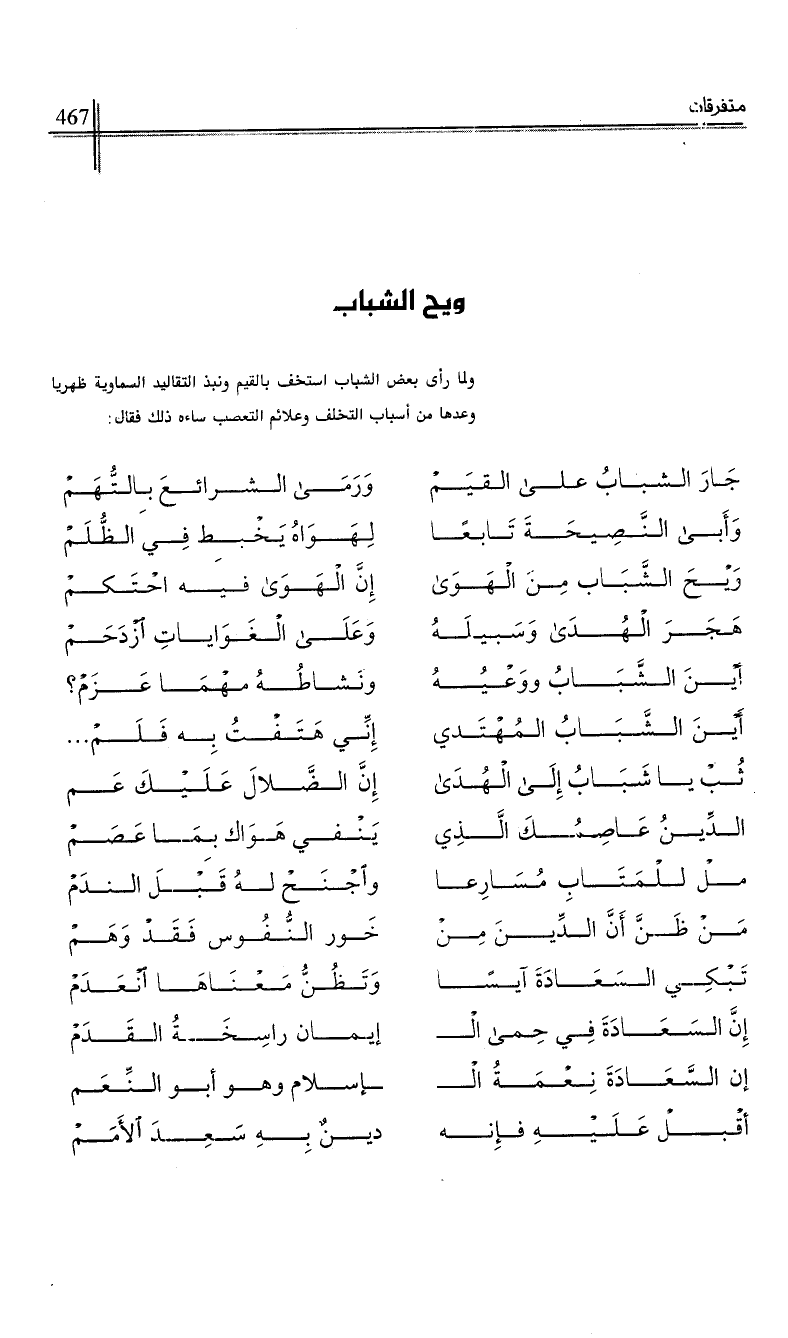 متفرقات
467
ويح الشباب
ولما رأى بعض الشباب استخف بالقيم ونبذ التقاليد السماوية ظهريا
وعدها من أسباب التخلف وعلائم التعصب ساءه ذلك فقال:
جَارَ الشبابُ على القيَمْ وَرَمَى الشرائعَ بالتُّهَمْ
وَأَبىٰ النَّصِيحَةَ تَابعًا لِهَوَاهُ يَخْبِط فِي الظُّلَمْ
وَيْحَ الشَّبَاب مِنَ الْهَوَىٰ إنَّ الْهَوَىٰ فيه احْتَكمْ
هَجَرَ الْهُدَىٰ وَسَبيلَهُ وَعَلَى الْغَوَايـاتِ ٱزْدَحَمْ
أيْنَ الشَّبَابُ ووَعْيُهُ ونَشاطُهُ مهْمَا عَزَمْ؟
أَيْنَ الشَّبَابُ المُهْتَدي إنِّي هَتَفْتُ بِه فَلَمْ...
ثُبْ يا شَبَابُ إلَىٰ الْهُدَىٰ إنَّ الضَّلالَ عَلَيْكَ عَم
الدِّينُ عَاصِمُكَ الَّذِي يَنْفي هَوَاك بمَا عَصَمْ
مـلْ لـلْمَتَابِ مُسَارعا وٱجْنَحْ لهُ قَبْلَ الندَمْ
مَنْ ظَنَّ أَنَّ الدِّينَ مِنْ خَور النُّفُوس فَقَدْ وَهَمْ
تَبْكِي السَعَادَةَ آيسًا وَتَظُنُّ مَعْنَاهَا ٱنْعَدَمْ
إنَّ السَعَادَةَ فِي حِمىٰ الْـ إيمان راسِخَةُ القَدَمْ
إن السَّعَادَةَ نِعْمَةُ الْـ ـإسلام وهو أبو النِّعَم
أقْبلْ عَلَيْهِ فإنه دينٌ بِه سَعِدَ ٱلأَمَمْ